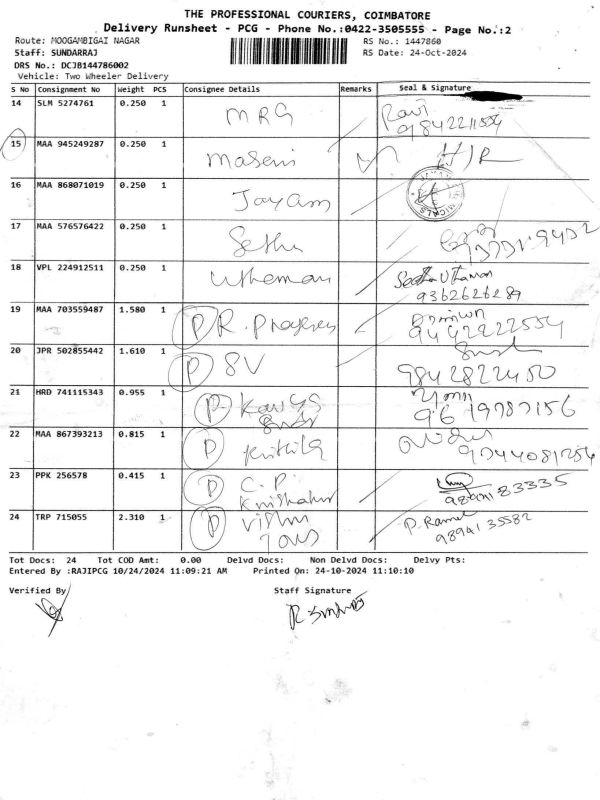 THE PROFESSIONAL COURIERS, COIMBATORE
Delivery Runsheet - PCG - Phone No.:0422-3505555 - Page No.:2
Route: MOOGAMBIGAI NAGAR RS No.: 1447860
Staff: SUNDARRAJ RS Date: 24-Oct-2024
DRS No.: DCJB144786002
Vehicle: Two Wheeler Delivery
S No Consignment No Weight PCS Consignee Details Remarks Seal & Signature
14 SLM 5274761 0.250 1 MRG Ravi
9842211554
15 MAA 945249287 0.250 1 maseni
16 MAA 868071019 0.250 1 Jayam
17 MAA 576576422 0.250 1 Sethu
18 VPL 224912511 0.250 1 utheman
9362626289
19 MAA 703559487 1.580 1 P R. 
9442222554
20 JPR 502855442 1.610 1 P SV
9842822450
21 HRD 741115343 0.955 1 P
9619787156
22 MAA 867393213 0.815 1 P
9244081254
23 PPK 256578 0.415 1 P C.P.
83335
24 TRP 715055 2.310 1 P Vishnu P.
9894135582
Tot Docs: 24 Tot COD Amt: 0.00 Delvd Docs: Non Delvd Docs: Delvy Pts:
Entered By :RAJIPCG 10/24/2024 11:09:21 AM Printed On: 24-10-2024 11:10:10
Verified By Staff Signature